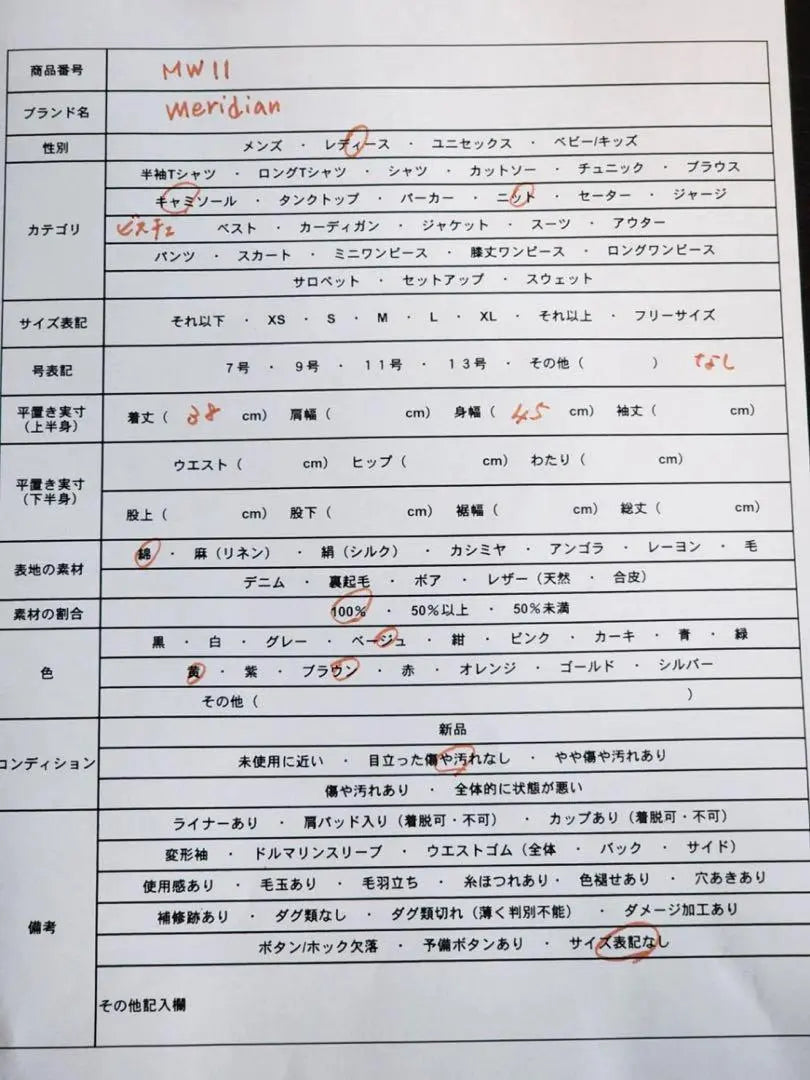 商品番号 MW11
ブランド名 meridian
性別 メンズ ・ レディース ・ ユニセックス ・ ベビー/キッズ
カテゴリ
半袖Tシャツ ・ ロングTシャツ ・ シャツ ・ カットソー ・ チュニック ・ ブラウス
キャミソール ・ タンクトップ ・ パーカー ・ ニット ・ セーター ・ ジャージ
ビスチェ ベスト ・ カーディガン ・ ジャケット ・ スーツ ・ アウター
パンツ ・ スカート ・ ミニワンピース ・ 膝丈ワンピース ・ ロングワンピース
サロペット ・ セットアップ ・ スウェット
サイズ表記 それ以下 ・ XS ・ S ・ M ・ L ・ XL ・ それ以上 ・ フリーサイズ
号表記 7号 ・ 9号 ・ 11号 ・ 13号 ・ その他 ( ) なし
平置き実寸
(上半身)
着丈 ( 38 cm) 肩幅 ( cm) 身幅 ( 45 cm) 袖丈 ( cm)
平置き実寸
(下半身)
ウエスト ( cm) ヒップ ( cm) わたり ( cm)
股上 ( cm) 股下 ( cm) 裾幅 ( cm) 総丈 ( cm)
表地の素材
綿 ・ 麻 (リネン) ・ 絹 (シルク) ・ カシミヤ ・ アンゴラ ・ レーヨン ・ 毛
デニム ・ 裏起毛 ・ ボア ・ レザー (天然 ・ 合皮)
素材の割合 100% ・ 50%以上 ・ 50%未満
色
黒 ・ 白 ・ グレー ・ ベージュ ・ 紺 ・ ピンク ・ カーキ ・ 青 ・ 緑
黄 ・ 紫 ・ ブラウン ・ 赤 ・ オレンジ ・ ゴールド ・ シルバー
その他 ( )
コンディション
新品
未使用に近い ・ 目立った傷や汚れなし ・ やや傷や汚れあり
傷や汚れあり ・ 全体的に状態が悪い
備考
ライナーあり ・ 肩パッド入り (着脱可・不可) ・ カップあり (着脱可・不可)
変形袖 ・ ドルマリンスリーブ ・ ウエストゴム (全体 ・ バック ・ サイド)
使用感あり ・ 毛玉あり ・ 毛羽立ち ・ 糸ほつれあり ・ 色褪せあり ・ 穴あきあり
補修跡あり ・ ダグ類なし ・ ダグ類切れ (薄く判別不能) ・ ダメージ加工あり
ボタン/ホック欠落 ・ 予備ボタンあり ・ サイズ表記なし
その他記入欄